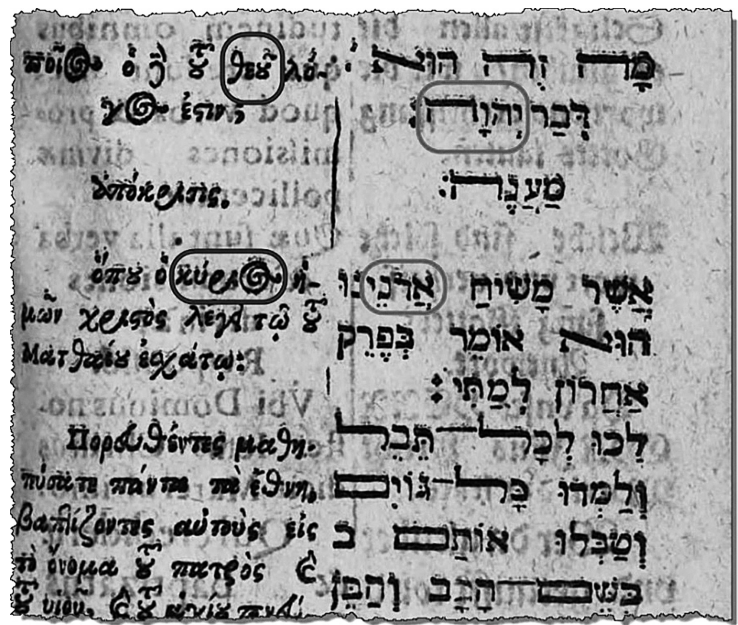 ποῖος ὁ τοῦ θεοῦ λό-
γος ἐστιν
ἀπόκρισις.
ὅπου ὁ κύριος ἡ-
μῶν χριστὸς λέγει τῷ τοῦ
Ματθαίου ἐσχάτῳ:
Πορευθέντες μαθη-
τεύσατε πάντα τὰ ἔθνη,
βαπτίζοντες αὐτοὺς εἰς
τὸ ὄνομα τοῦ πατρὸς καὶ
τοῦ υἱοῦ, καὶ τοῦ ἁγίου πνεύ-
מָה זֶה הוּא
דְּבַר יְהוָה:
מַעֲנֶה:
אֲשֶׁר מָשִׁיחַ אֲדֹנֵינוּ
הוּא אוֹמר בְּפֶרֶק
אַחֲרוֹן לְמַתַּי:
לְכוּ לְכָל־תֵּבֵל
וְלַמְּדוּ כָּל־גּוֹיִם
וְטַבְּלוּ אוֹתָם ב
בְּשֵׁם הָאָב וְהַבֵּן